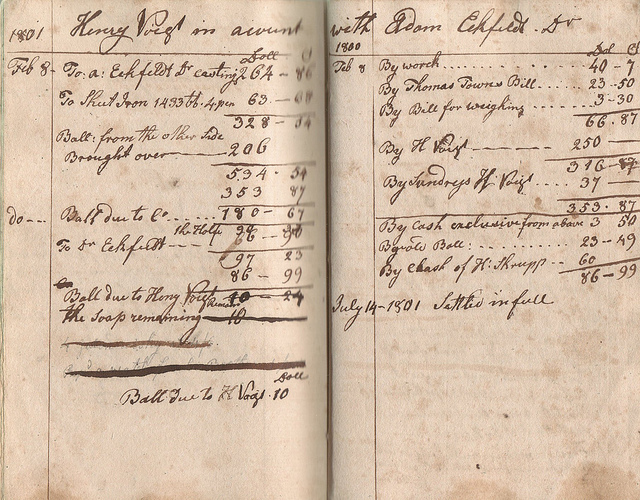 1801 Henry Voigt in acount
Doll C
Feb 8 - To: a: Eckfeldt Dr casting 264 - 86
To Sheet Iron 1433 lb. 63 - 68
328 - 54
Ball: from the other side
Brought over 206
534 - 54
353 87
do - - - Ball due to Co ..... 180 - 67
the Half
To Dr Eckfeldt - - -
97 23
86 - 99
Ball due to Henry Voigt 10 - 24
the Soap remaining 10
Doll
Ball due to H Voigt . 10
with Adam Eckfeldt . Dr
1800
Dol C
Feb 8 By work .......... 40 - 7
By Thomas Towns Bill ..... 23 - 50
By Bill for weighing ...... 3 - 30
66.87
By H Voigt 250
316 - 87
By Sundrys H Voigt .... 37
353 - 87
By Cash exclusive from above 3 50
Ball: ............ 23 - 49
By Cash of H: 60
86 - 99
July 14 - 1801 Settled in full